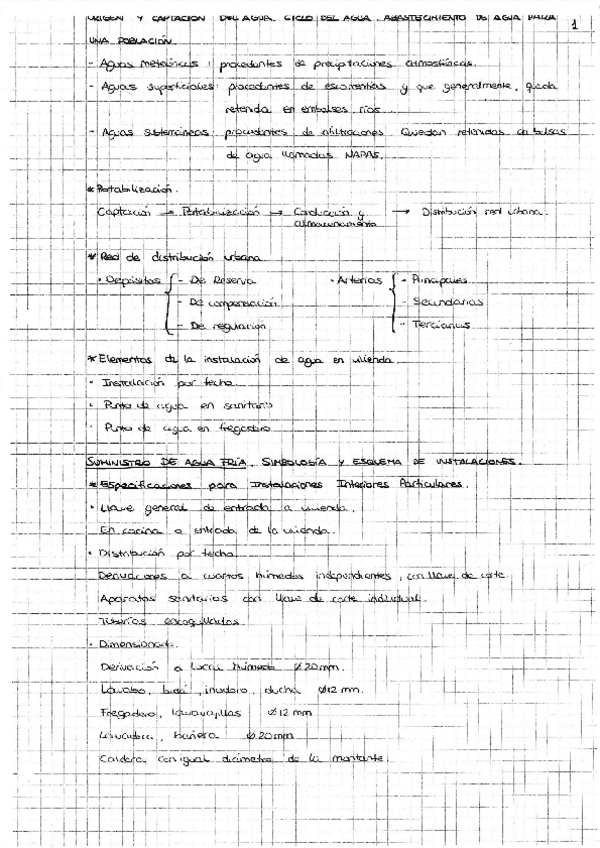 ORIGEN Y CAPTACIÓN DEL AGUA. CICLO DEL AGUA. ABASTECIMIENTO DE AGUA PARA 1
UNA POBLACIÓN
- Aguas meteóricas: procedentes de precipitaciones atmosféricas.
- Aguas superficiales: procedentes de escorrentías y que generalmente, queda
retenida en embalses, ríos...
- Aguas subterráneas: procedentes de infiltraciones. Quedan retenidas en bolsas
de agua llamadas NAPAS.
* Potabilización.
Captación → Potabilización → Conducción y → Distribución red urbana.
almacenamiento
* Red de distribución urbana
· Depósitos { - De Reserva · Arterias { - Principales
- De compensación - Secundarias
- De regulación - Terciarias
* Elementos de la instalación de agua en vivienda
· Instalación por techo
· Punto de agua en sanitario
· Punto de agua en fregadero
SUMINISTRO DE AGUA FRÍA. SIMBOLOGÍA Y ESQUEMA DE INSTALACIONES.
* Especificaciones para Instalaciones Interiores Particulares.
· Llave general de entrada a vivienda.
En cocina o entrada de la vivienda.
· Distribución por techo
Derivaciones a cuartos húmedos independientes, con llave de corte.
Aparatos sanitarios con llave de corte individual.
Tuberías encoquilladas.
· Dimensionado.
Derivación a local húmedo Ø20mm.
Lavabo, bidé, inodoro, ducha Ø12 mm.
Fregadero, lavavajillas Ø12 mm
Lavadora, bañera Ø20mm
Caldera con igual diámetro de la montante.